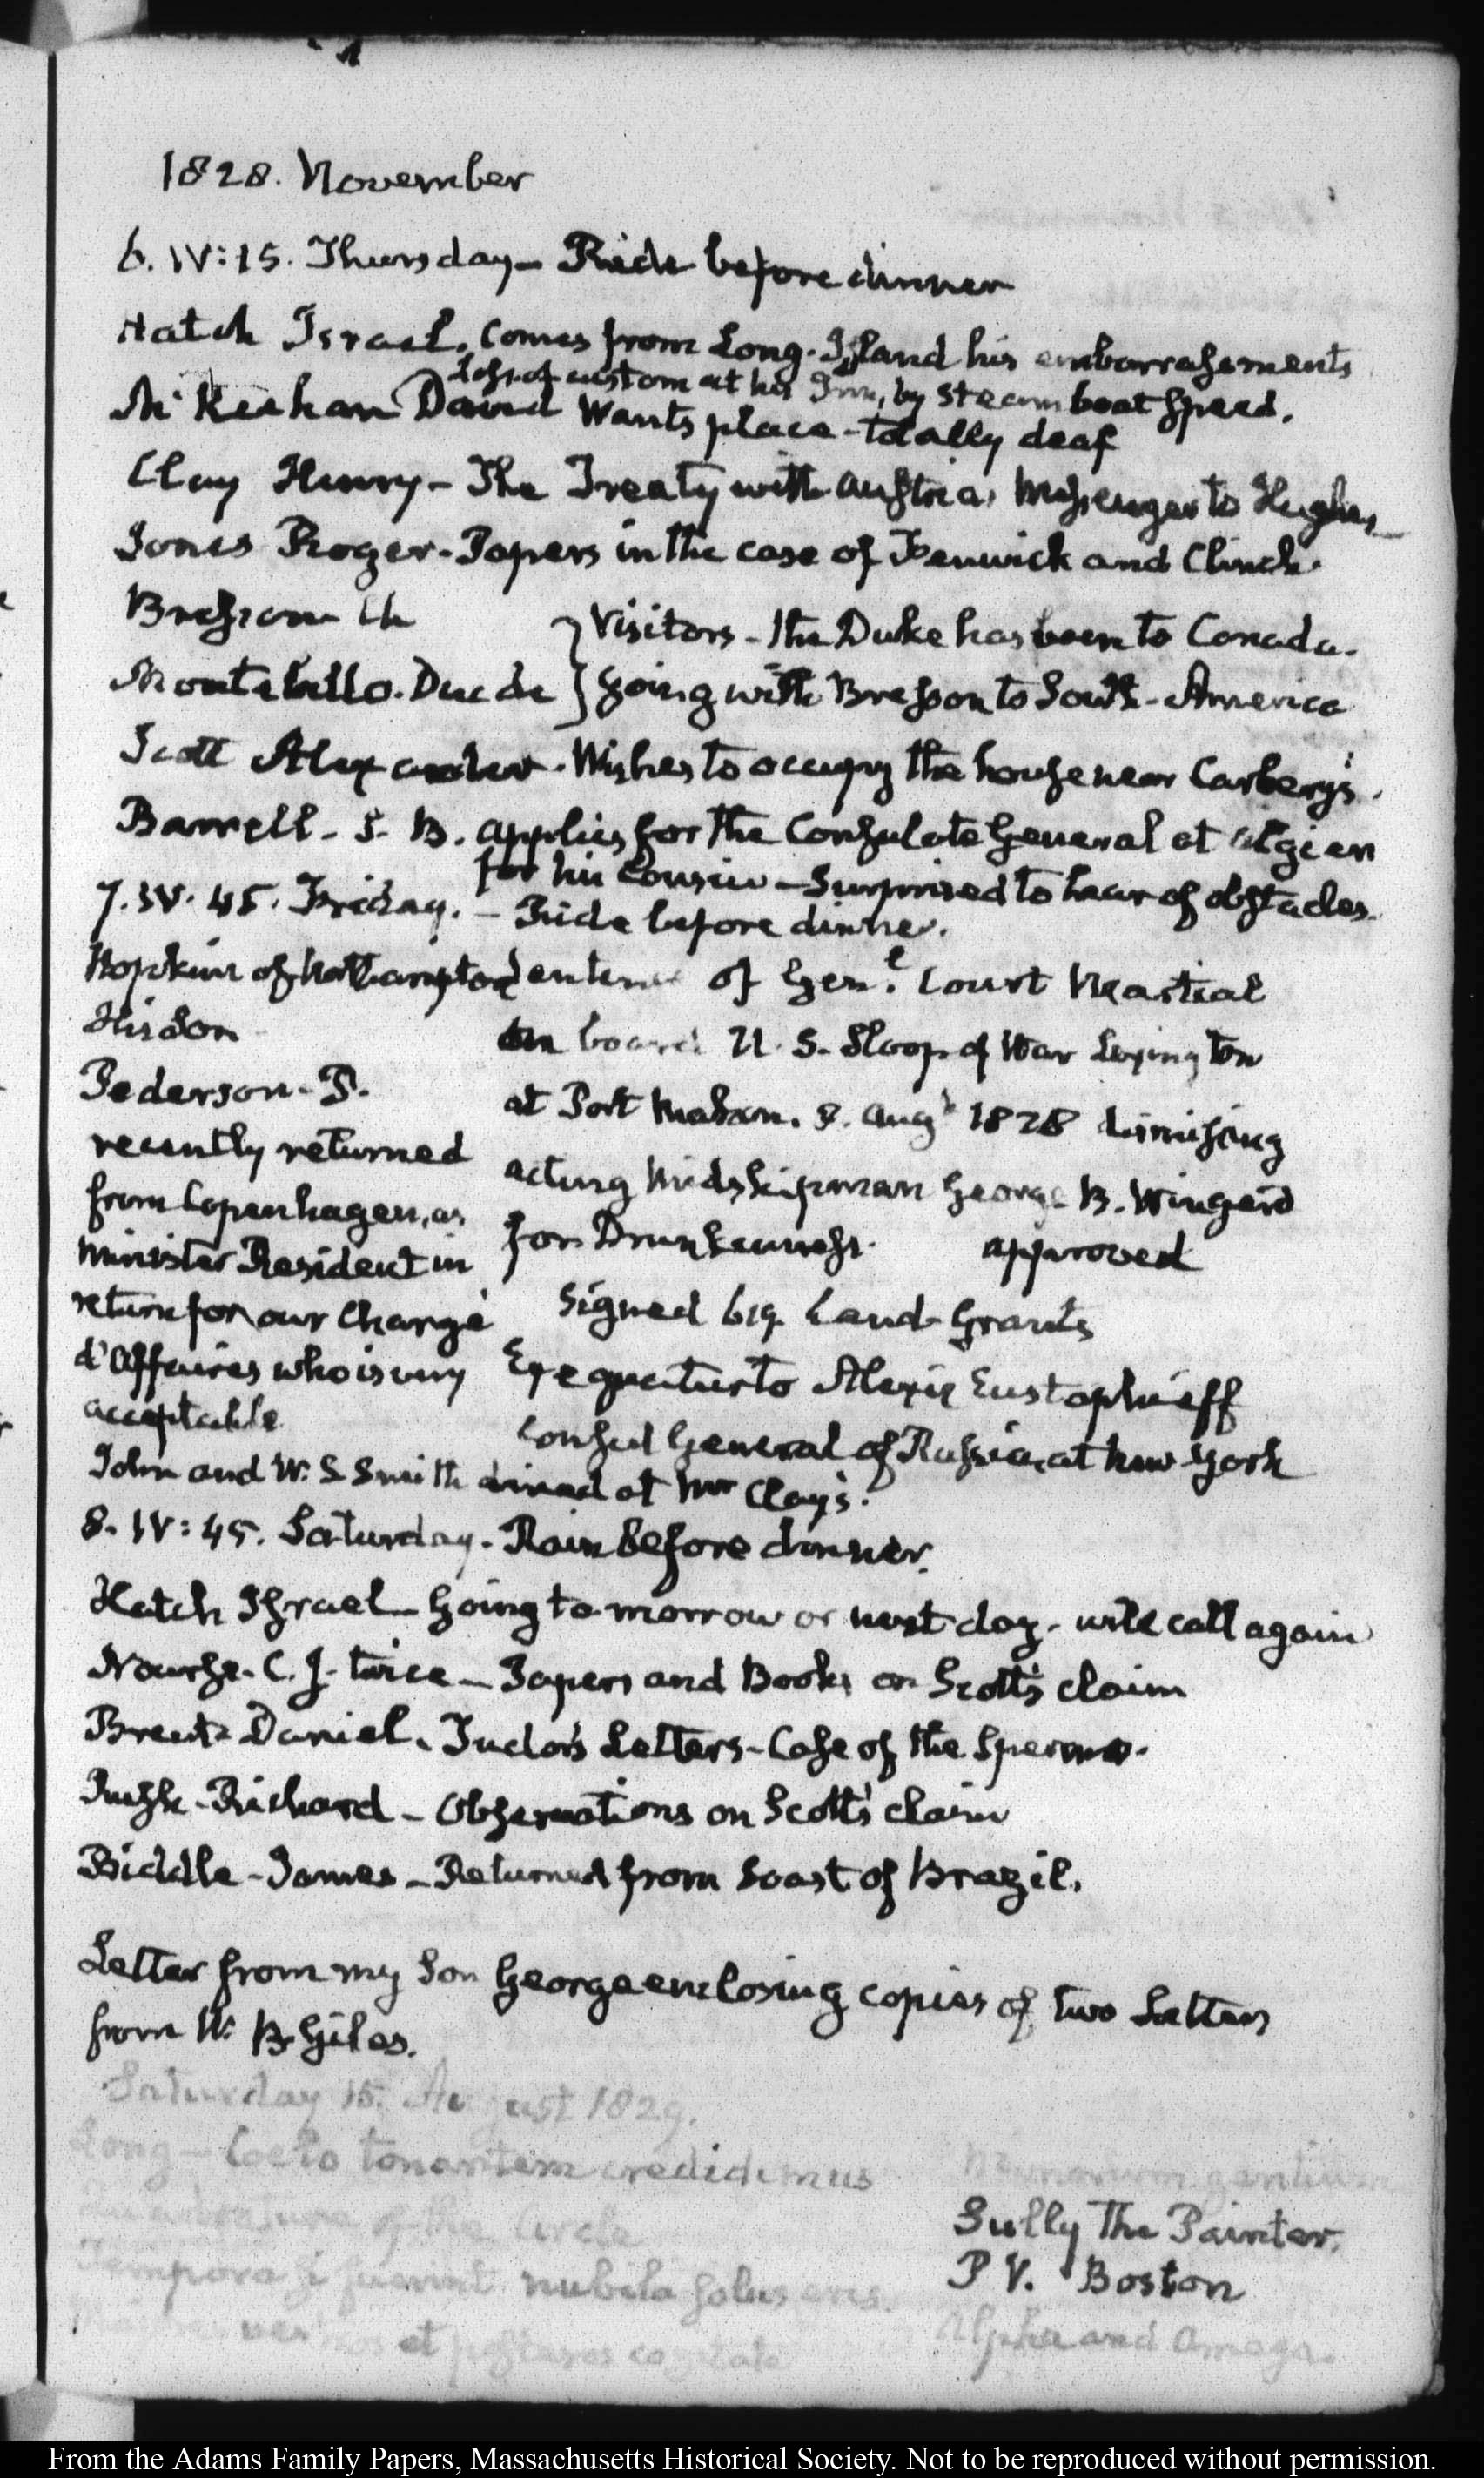 1828. November
6. IV:15. Thursday – Ride before dinner
Hatch Israel. Comes from Long-Island his embarrassments
Loss of custom at his Inn, by steam boat speed.
McKeehan David Wants place – totally deaf
Clay Henry – The Treaty with Austria. Messenger to Hughes
Jones Roger – Papers in the case of Fenwick and Clinch.
Bresson Ch
Montebello. Duc de } Visitors – the Duke has been to Canada.
going with Bresson to South-America
Scott Alexander. Wishes to occupy the house near Carbery's.
Barrell – S. B. applies for the Consulate General at Algiers
for his Cousin – Surprized to hear of obstacles.
7. IV. 45. Friday. – Ride before dinner.
Hopkins of Northampton
His Son
Pederson – P.
recently returned
from Copenhagen, as
Minister Resident in
return for our Chargé
d'Affaires who is very
acceptable
Sentence of Genl. Court Martial
on board U. S. Sloop of War Lexington
at Port Mahon. 8. Augt. 1828 dismissing
acting Midshipman George B. Wingerd
for Drunkenness. approved
Signed 619. Land-Grants
Exequatur to Alexis Eustaphieff
Consul General of Russia, at New York
John and W. S Smith dined at Mr Clay's.
8. IV: 45. Saturday. Rain before dinner.
Hatch Israel – Going to-morrow or next day. will call again
Nourse. C. J. twice – Papers and Books on Scott's claim
Brent Daniel. Tudor's Letters – Case of the Spermo.
Rush – Richard – Observations on Scott's claim
Biddle – James – Returned from Coast of Brazil.
Letter from my Son George enclosing copies of two Letters
from W. B. Giles.
Saturday 15. August 1829.
Long – Coelo tonantem credidimus
of the Circle
Tempora si fuerint nubila solus eris.
et
gentium
Sully the Painter.
P V. Boston
Alpha and Omega.
From the Adams Family Papers, Massachusetts Historical Society. Not to be reproduced without permission.